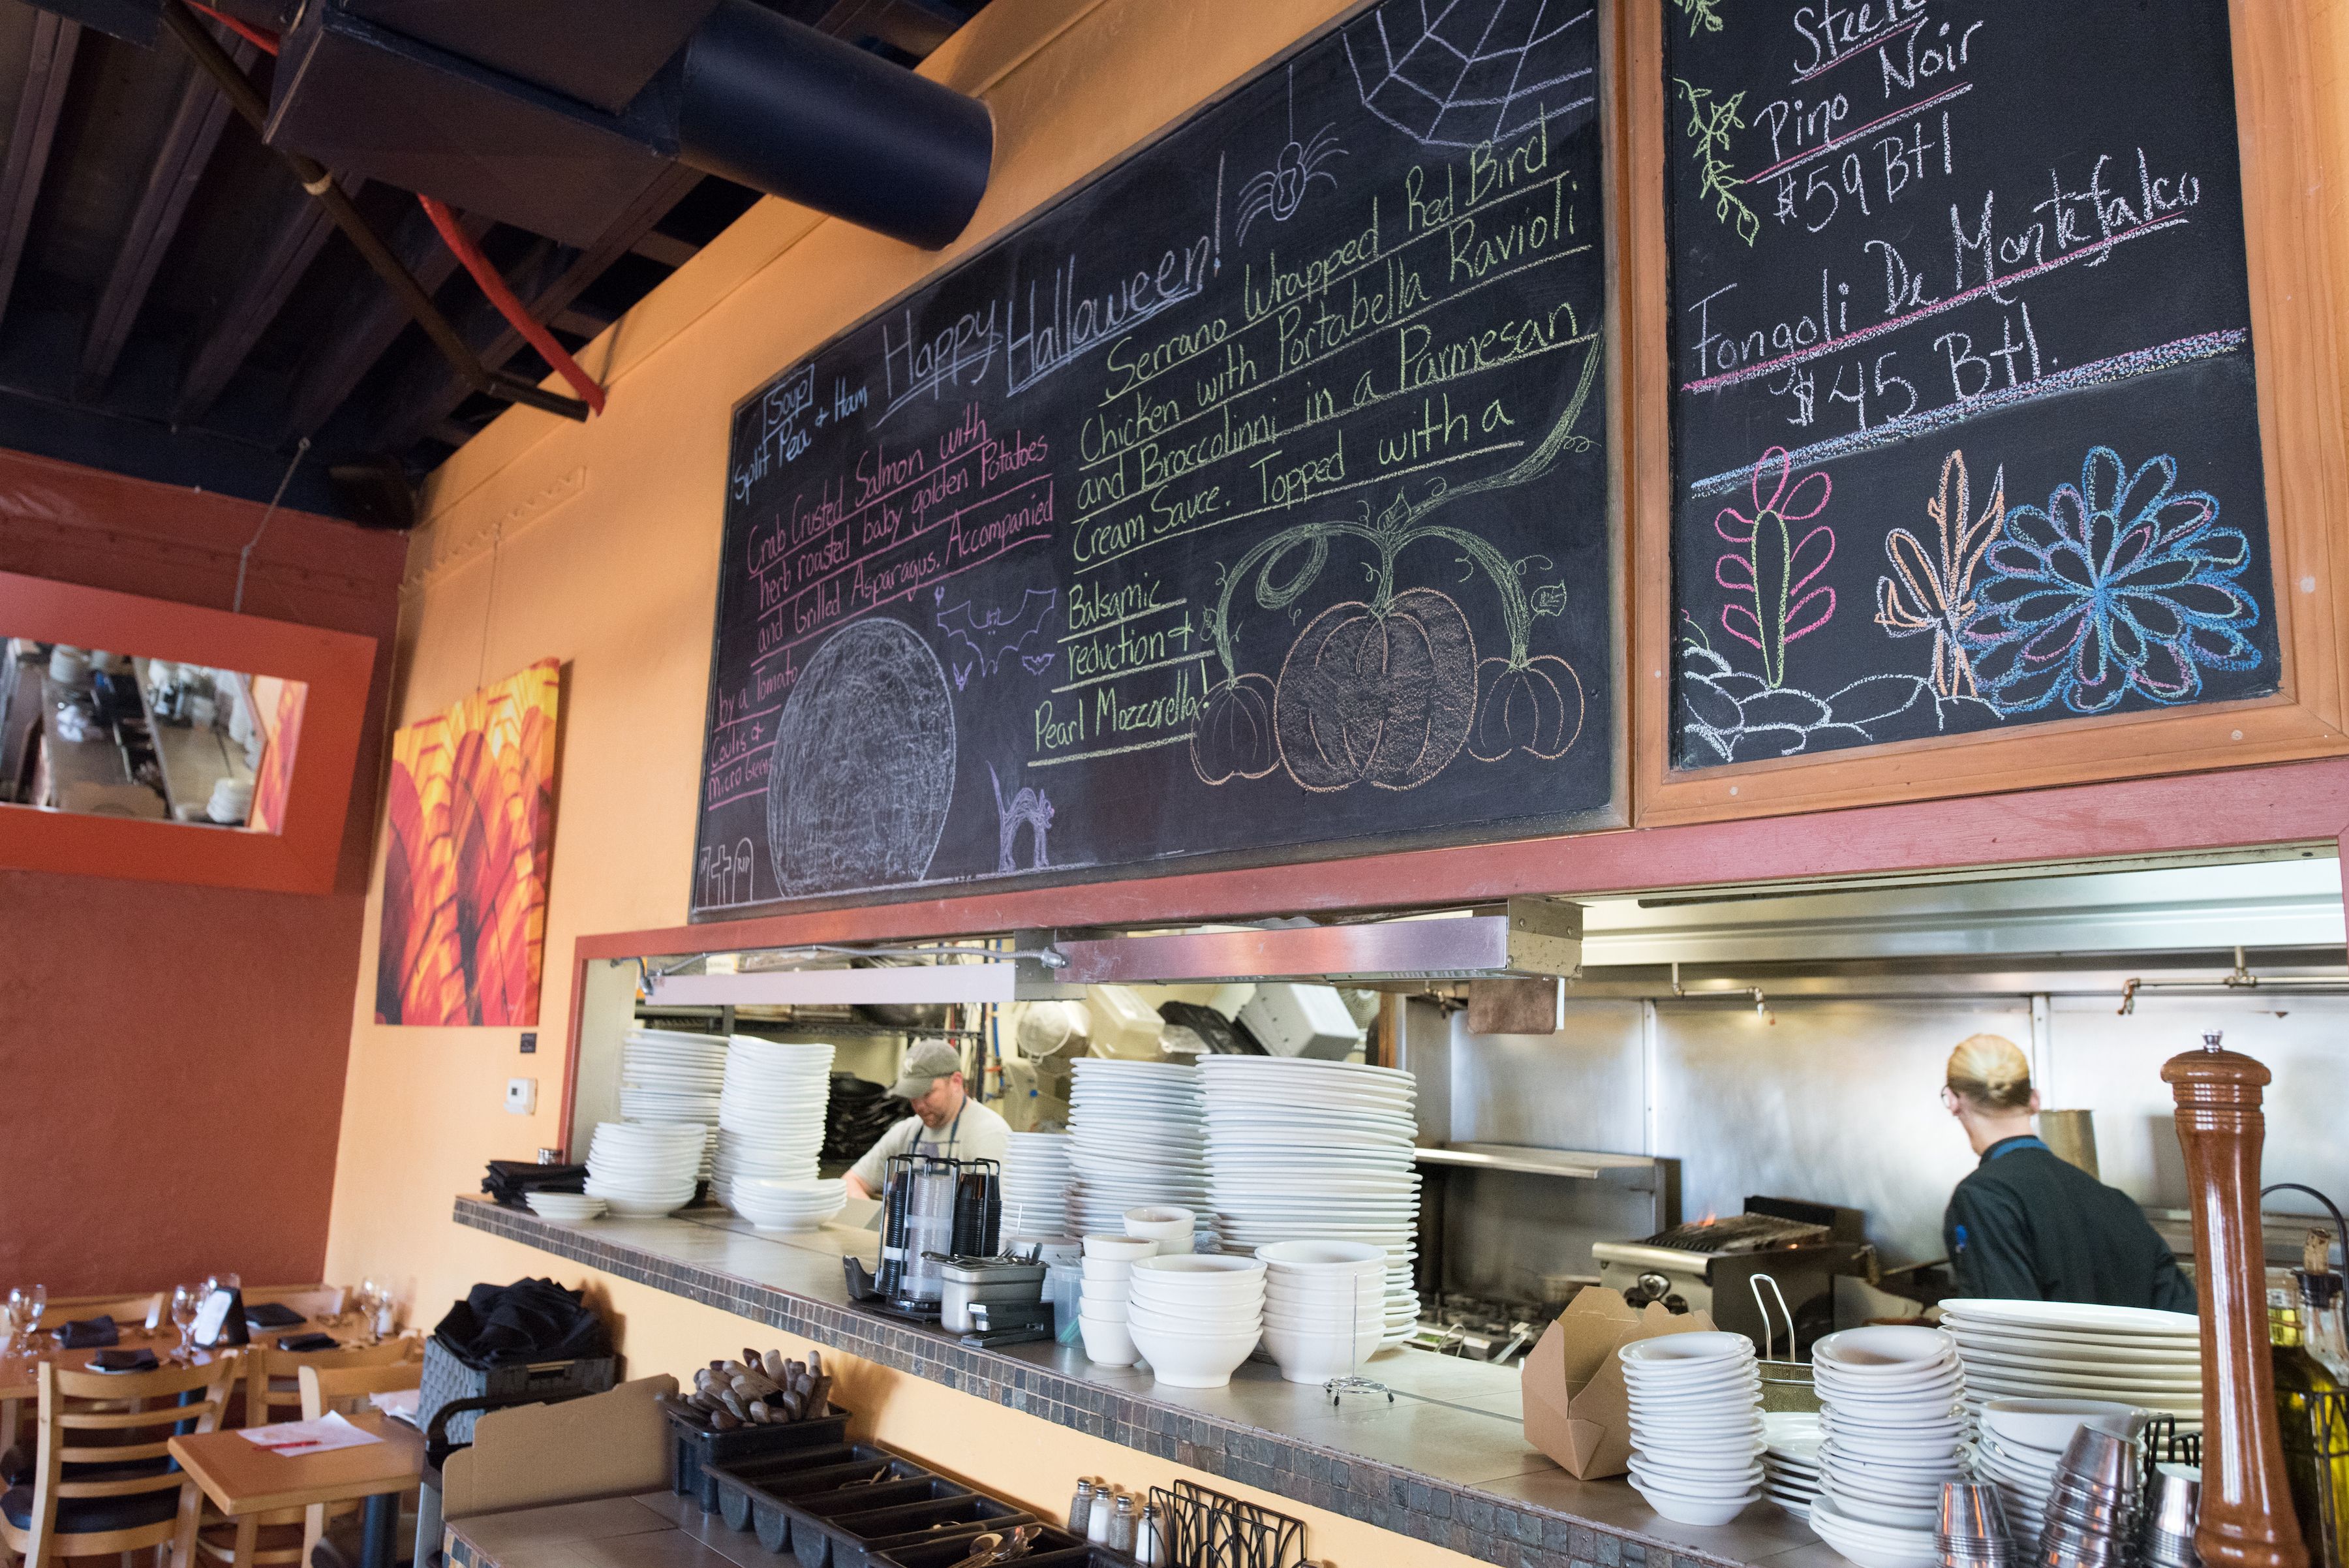 Happy Halloween!
Soup
Split Pea & Ham
Crab Crusted Salmon with
herb roasted baby golden Potatoes
and Grilled Asparagus. Accompanied
by a Tomato
Coulis &
micro Greens
Serrano Wrapped Red Bird
Chicken with Portabella Ravioli
and Broccolinni in a Parmesan
Cream Sauce. Topped with a
Balsamic
reduction &
Pearl Mozzarella!
RIP
Pino Noir
$59 Btl
Fongoli De Montefalco
$45 Btl.